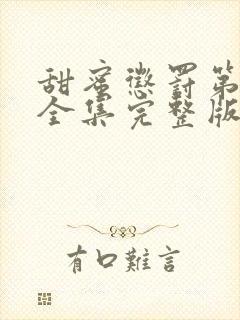 甜蜜懲罰第
全集完整版
有口難言